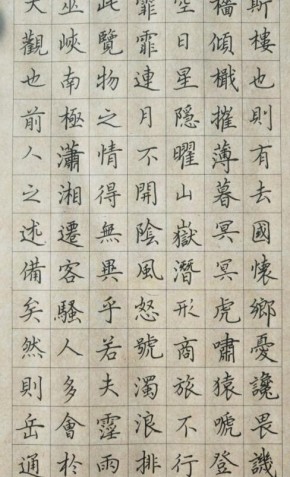 斯樓也則有去國懷鄉憂讒畏譏
檣傾檝摧薄暮冥冥虎嘯猿嗁登
空日星隱曜山嶽潛形商旅不行
霏霏連月不開陰風怒號濁浪排
此覽物之情得無異乎若夫霪雨
巫峽南極瀟湘遷客騷人多會於
大觀也前人之述備矣然則岳通